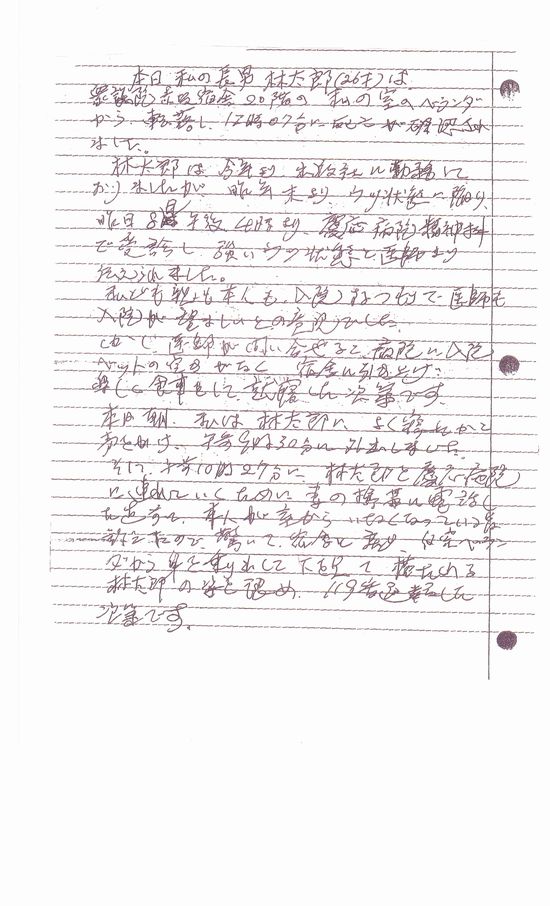 本日 私の長男 林太郎(26才)は、
衆議院赤坂宿舎20階の 私の室のベランダ
から、転落し、12時07分に死亡が確認され
ました。
林太郎は 今年より、出版社に勤務して
おりましたが、昨年末より、ウツ状態に陥り、
昨日 午後4時より、慶応病院精神科
で受診し、強いウツ状態と医師より
伝えられました。
私ども親も本人も、入院するつもりで、医師も
入院が望ましいとの意見でした。
しかし、医師が問い合せると、病院に入院
ベットの空きがなく、宿舎に引き上げ、
楽しく食事をして就寝した次第です。
本日朝、私は林太郎に、よく寝たかと
声をかけ、午前 時30分に外出しました。
その 、午前10時27分に、林太郎を慶応病院
に連れていくために 妻の携帯に電話し
た 、本人が室からいなくなっている
 ので、驚いて、宿舎を 
ダから身を乗り出して下を見て 横たわる
林太郎の姿を認め、119番通報した
次第です。